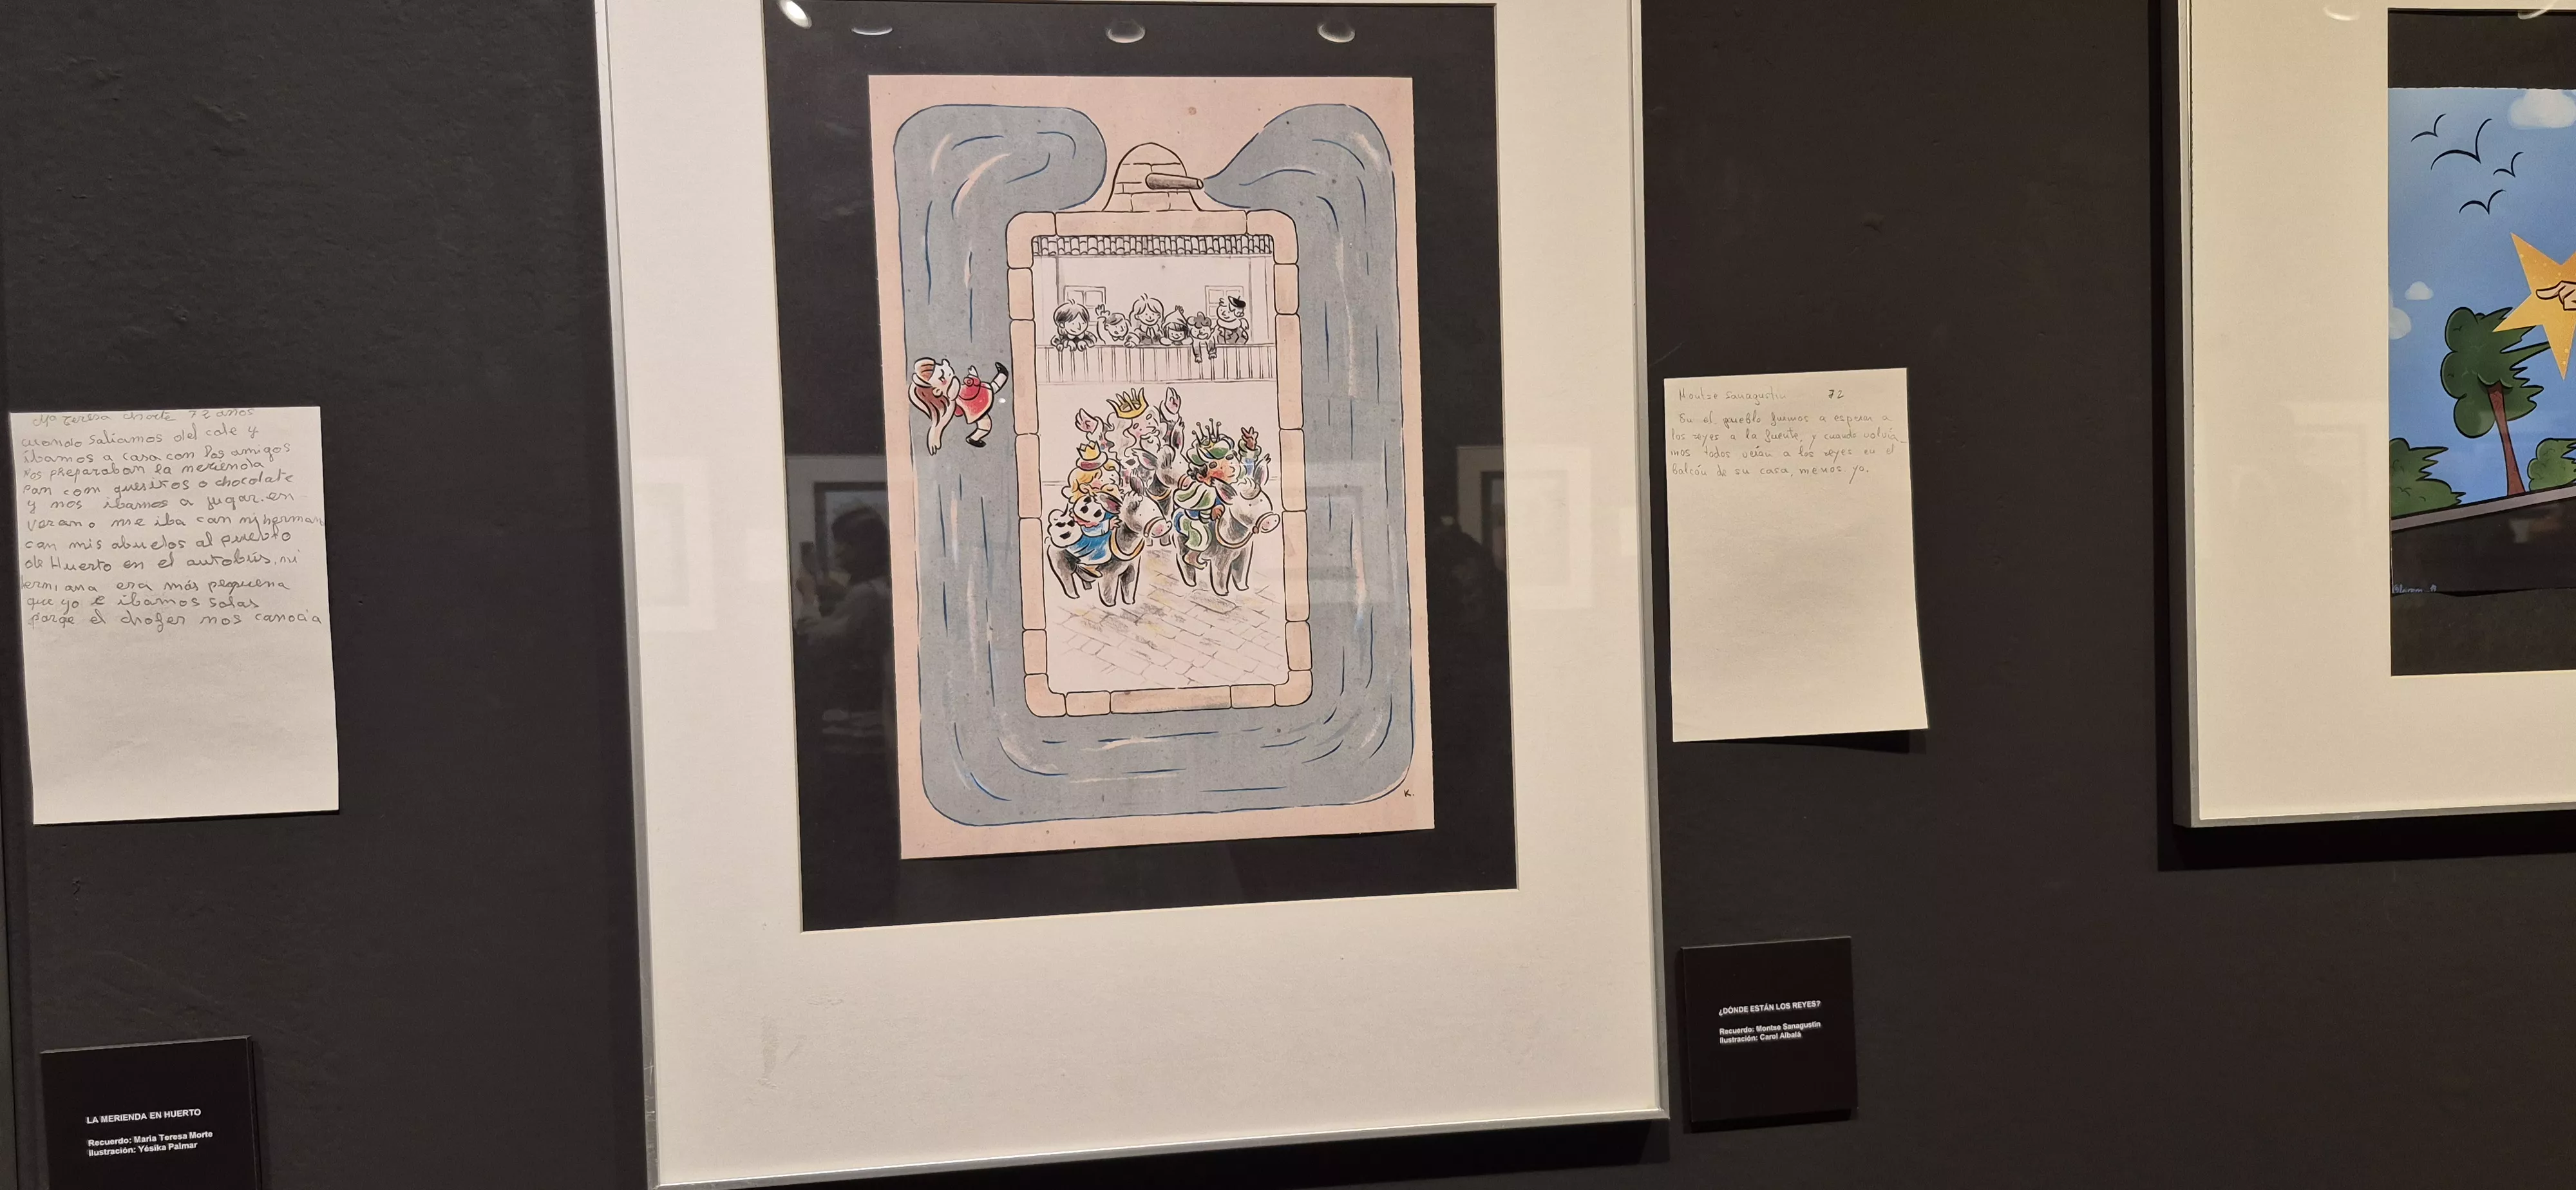 Mª Teresa Morte 72 años
cuando saliamos del cole y
ibamos a casa con los amigos
nos preparaban la merienda
Pan com quesitos o chocolate
y nos ibamos a jugar. en
verano me iba con mi herman
con mis abuelos al pueblo
de Huerto en el autobús, mi
ermana era más pequena
que yo e ibamos solas
porqe el chofer nos conocia
LA MERIENDA EN HUERTO
Recuerdo: Maria Teresa Morte
Ilustración: Yésika Palmar
K.
Montse Sanagustin 72
En el pueblo fuimos a esperar a
los reyes a la fuente, y cuando volvía-
mos todos veían a los reyes en el
balcón de su casa, menos yo.
¿DÓNDE ESTÁN LOS REYES?
Recuerdo: Montse Sanagustin
Ilustración: Carol Albalá